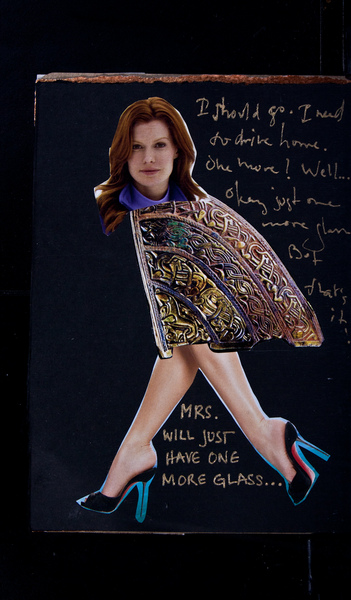 I should go. I need
to drive home.
One more? Well...
okay just one
more glass
But
that's
it!
MRS.
WILL JUST
HAVE ONE
MORE GLASS...